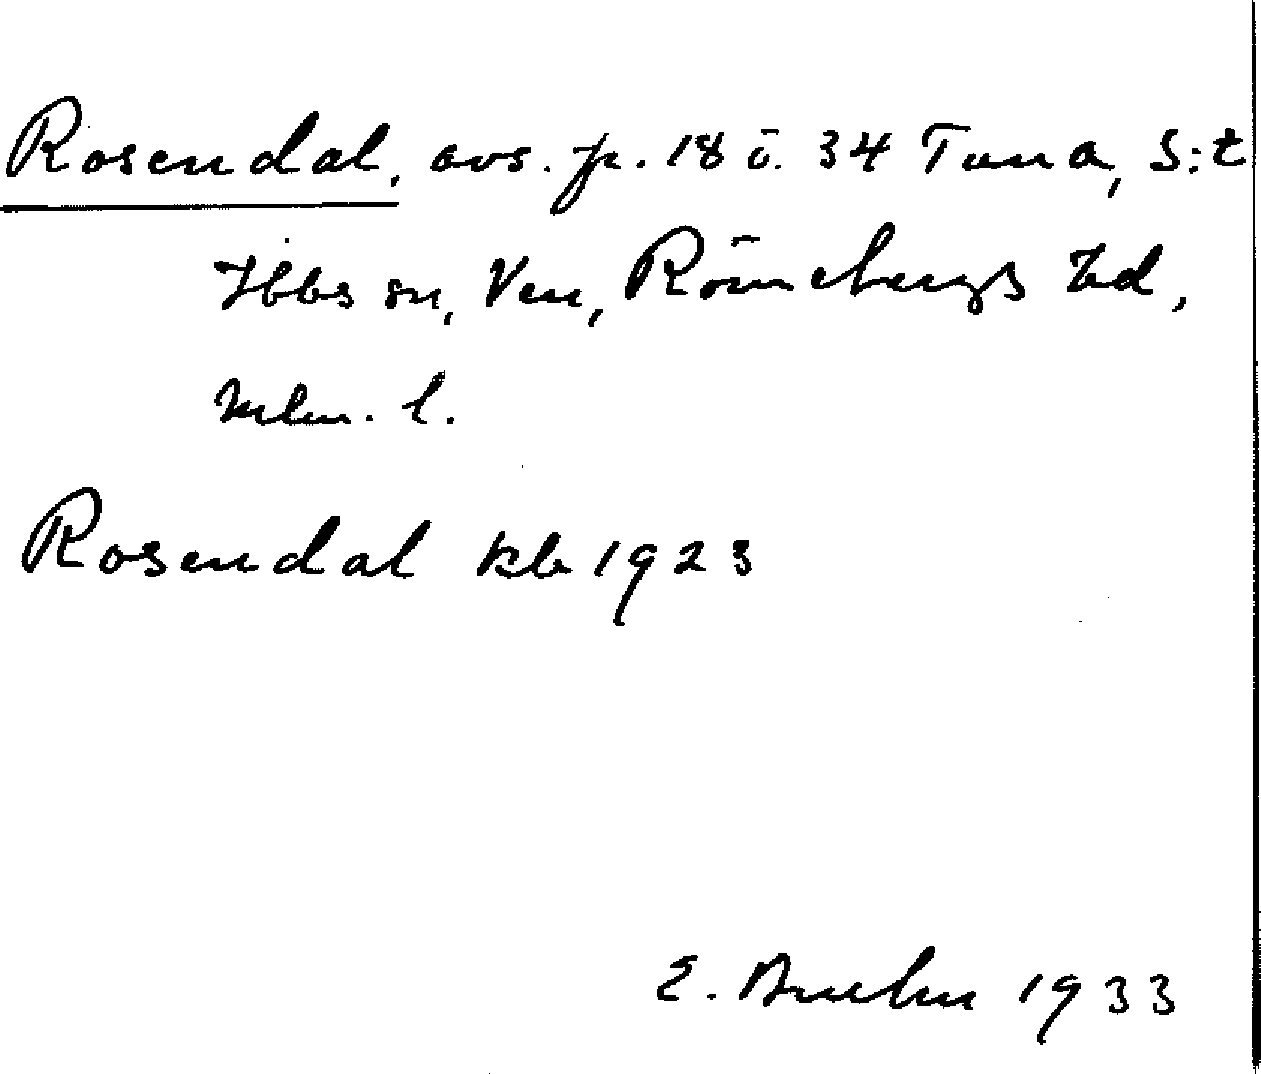 Rosendal, avs. fr. 18 o. 34 Tuna, S:t
Ibbs sn, Ven, Rönnebergs hd,
Mlm. l.
Rosendal kb 1923
E. Bruhn 1933